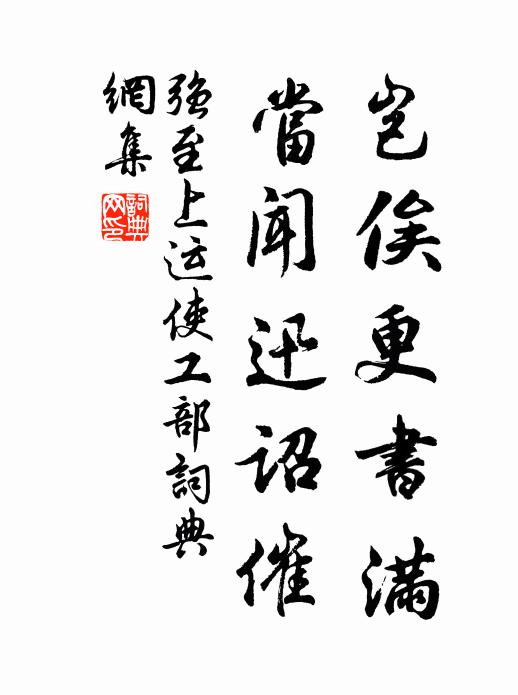 岂俟更書滿
當聞迅詔催
强至上运使工部詞典
網集
詞典
网印